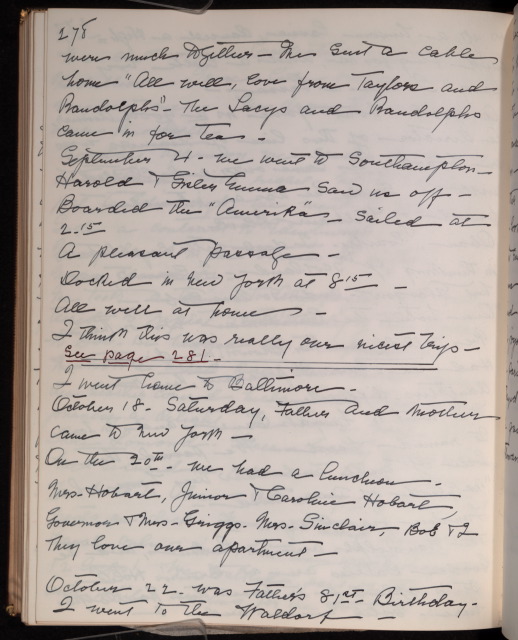 278
were much together - We sent a cable
home "All well, love from Taylors and
Randolphs" - The Lacys and Randolphs
came in for tea -
September 4 - we went to Southampton -
Harold & Sister Emma saw us off -
Boarded the "Amerika" - Sailed at
2.15
A pleasant passage -
Docked in New York at 8 15 -
All well at home -
I think this was really our nicest trip -
See page 281 -
I went home to Baltimore -
October 18 - Saturday, Father and Mother
came to New York -
On the 20th - we had a luncheon -
Mrs - Hobart, Junior & Caroline Hobart,
Governor & Mrs - Griggs - Mrs - Sinclair, Bob & I
They love our apartment -
October 22 - was Father's 81st - Birthday -
I went to the Waldorf -